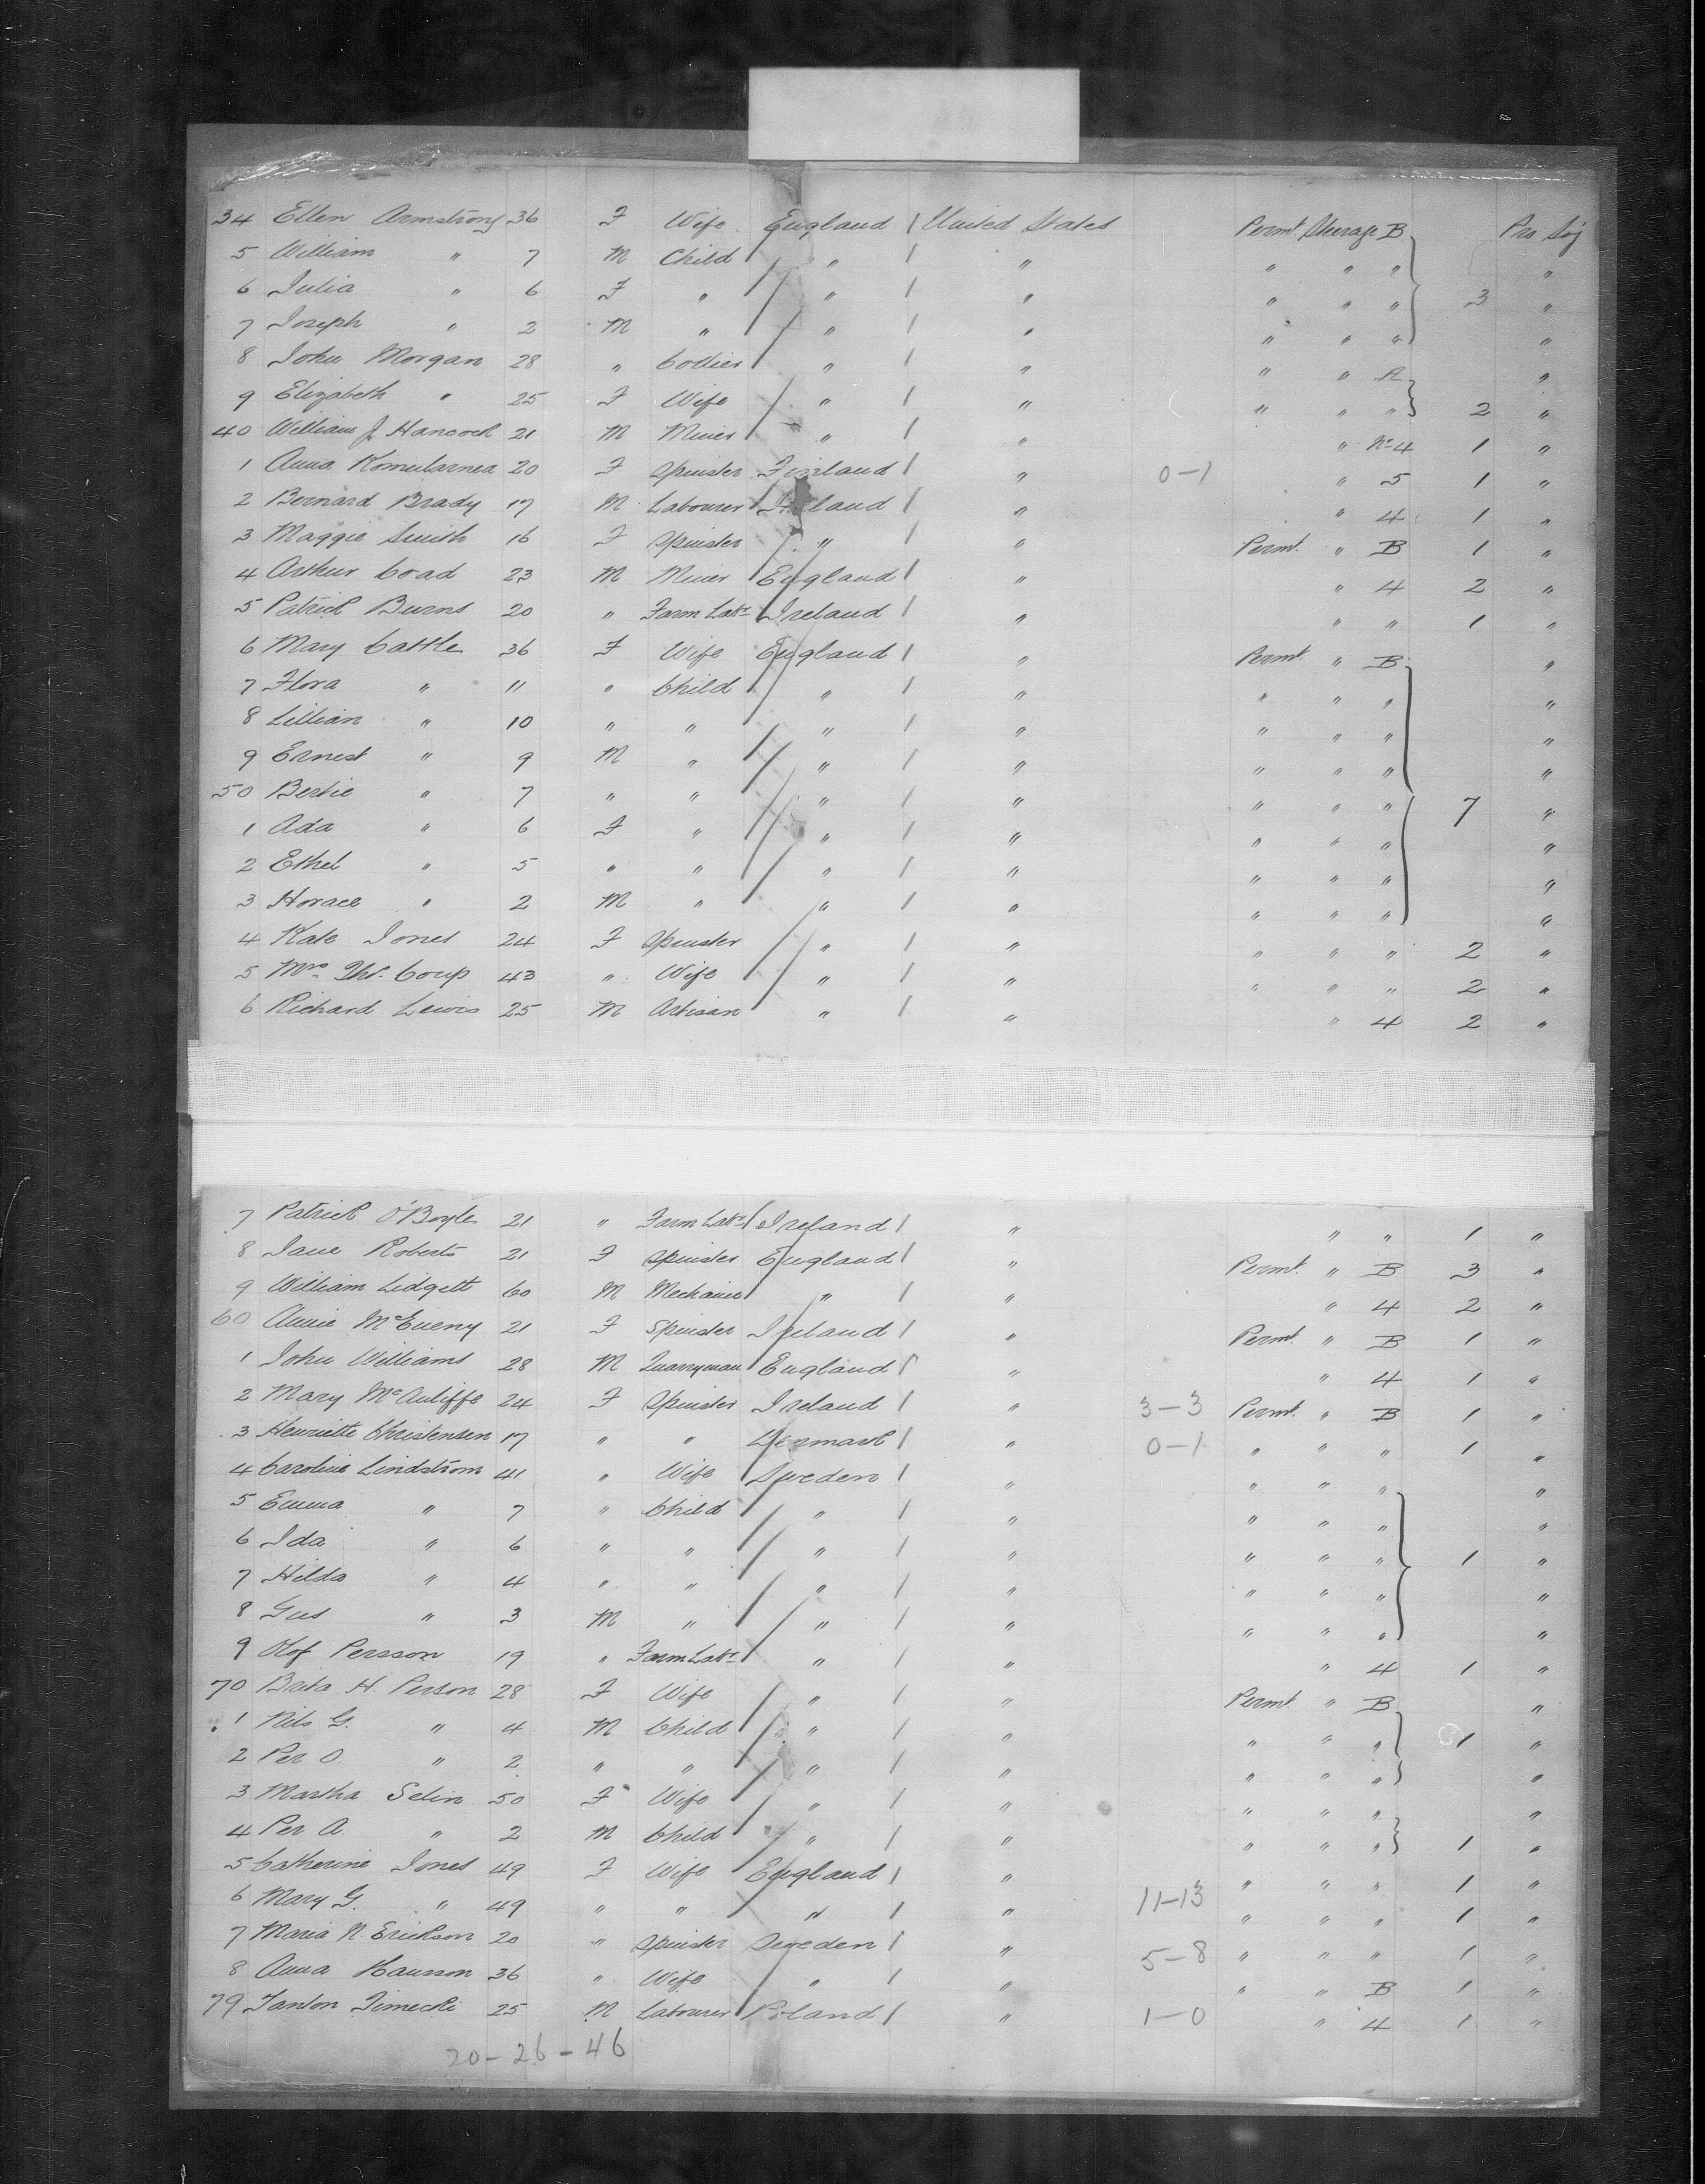 34 Ellen Armstrong 36 F Wife England / United States Permt Steerage B Pro Soj
5 William " 7 M Child " / " " " " "
6 Julia " 6 F " " / " " " " 3 "
7 Joseph " 2 M " " / " " " " "
8 John Morgan 28 " Collier " / " " " A "
9 Elizabeth " 25 F Wife " / " " " " 2 "
40 William J. Hancock 21 M Miner " / " " No 4 1 "
1 Anna Komulainea 20 F Spinster Finland / " 0-1 " 5 1 "
2 Bernard Brady 17 M Labourer Ireland / " " 4 1 "
3 Maggie Smith 16 F Spinster " / " Permt. " B 1 "
4 Arthur Coad 23 M Miner England / " " 4 2 "
5 Patrick Burns 20 " Farm Labr Ireland / " " " 1 "
6 Mary Cattle 36 F Wife England / " Permt. " B "
7 Flora " 11 " Child " / " " " " "
8 Lillian " 10 " " " / " " " " "
9 Ernest " 9 M " " / " " " " "
50 Bertie " 7 " " " / " " " " 7 "
1 Ada " 6 F " " / " " " " "
2 Ethel " 5 " " " / " " " " "
3 Horace " 2 M " " / " " " " "
4 Kate Jones 24 F Spinster " / " " " " 2 "
5 Mrs Thr. Coup 43 " Wife " / " " " " 2 "
6 Richard Lewis 25 M Artisan " / " " 4 2 "
7 Patrick O'Boyle 21 " Farm Labr Ireland / " " " 1 "
8 Jane Roberts 21 F Spinster England / " Permt. " B 3 "
9 William Lidgett 60 M Mechanic " / " " 4 2 "
60 Annie McEueny 21 F Spinster Ireland / " Permt. " B 1 "
1 John Williams 28 M Quarryman England / " " 4 1 "
2 Mary McAuliffe 24 F Spinster Ireland / " 3-3 Permt. " B 1 "
3 Henriette Christensen 17 " " Denmark / " 0-1 " " " 1 "
4 Caroline Lindstrom 41 " Wife Sweden / " " " " "
5 Emma " 7 " Child " / " " " " "
6 Ida " 6 " " " / " " " " 1 "
7 Hilda " 4 " " " / " " " " "
8 Gus " 3 M " " / " " " " "
9 Olof Persson 19 " Farm Labr " / " " 4 1 "
70 Brita H. Person 28 F Wife " / " Permt. " B "
1 Nils G. " 4 M Child " / " " " " 1 "
2 Per O. " 2 " " " / " " " " "
3 Martha Selin 50 F Wife " / " " " " "
4 Per A. " 2 M Child " / " " " " 1 "
5 Catherine Jones 49 F Wife England / " " " " 1 "
6 Mary G. " 49 " " " / " 11-13 " " " 1 "
7 Maria N. Erickson 20 " Spinster Sweden / " 5-8 " " " 1 "
8 Anna Hansson 36 " Wife " / " " " B 1 "
79 Janton Timecki 25 M Labourer Poland / " 1-0 " 4 1 "
20-26-46